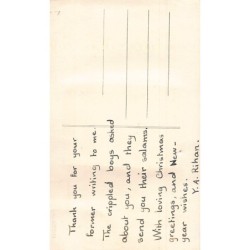 Thank you for your
former writing to me.
The crippled boys asked
about you, and they
send you their salams.
With loving Christmas
greetings, and New-
year wishes.
Y. A. Rihan.